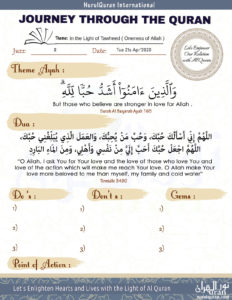 NurulQuran International
JOURNEY THROUGH THE QURAN
Theme: In the Light of Tawheed ( Oneness of Allah )
Juzz: 2
Date: Tue 21s Apr/2020
Let's Engineer
Our Relation
with Al Quran
Theme Ayah :
وَالَّذِينَ ءَامَنُوٓا۟ أَشَدُّ حُبًّا لِّلَّهِ
But those who believe are stronger in love for Allah .
Surah Al Baqarah Ayah 165
Dua :
اللَّهُمَّ إِنِّي أَسْأَلُكَ حُبَّكَ، وَحُبَّ مَنْ يُحِبُّكَ، وَالْعَمَلَ الَّذِي يُبَلِّغُنِي حُبَّكَ،
اللَّهُمَّ اجْعَلْ حُبَّكَ أَحَبَّ إِلَيَّ مِنْ نَفْسِي وَأَهْلِي، وَمِنَ الْمَاءِ الْبَارِدِ
"O Allah, I ask You for Your love and the love of those who love You and
love of the action which will make me reach Your love. O Allah make Your
love more beloved to me than myself, my family and cold water"
Tirmidhi 3490
Do 's :
Don't s :
Gems :
1)
1)
1)
2)
2)
2)
3)
3)
3)
Point of Action :
Let's Enlighten Hearts and Lives with the Light of Al Quran
نور القرآن